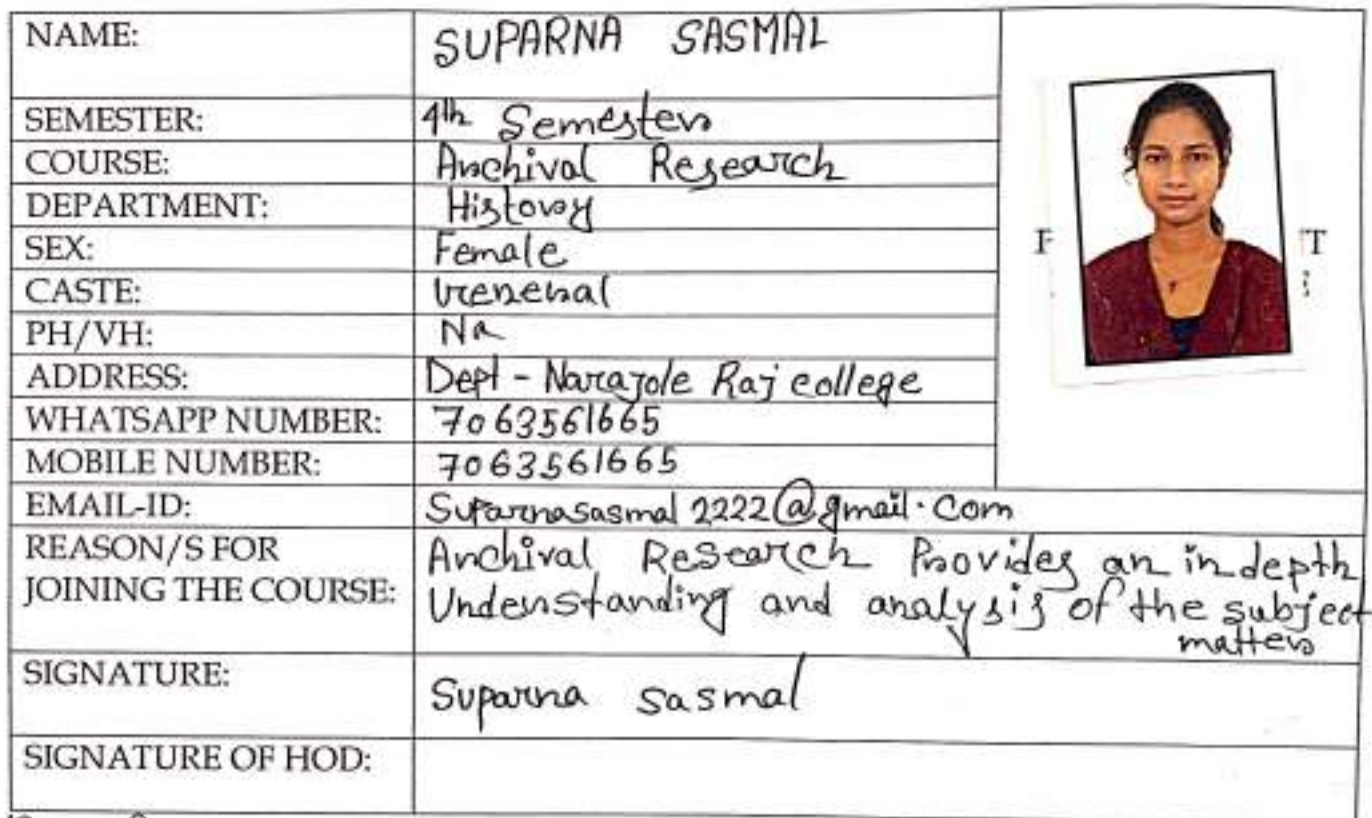 NAME: SUPARNA SASMAL
SEMESTER: 4th Semester
COURSE: Archival Research
DEPARTMENT: History
SEX: Female
CASTE: General
PH/VH: NA
ADDRESS: Dept - Narajole Raj college
WHATSAPP NUMBER: 7063561665
MOBILE NUMBER: 7063561665
EMAIL-ID: Suparnasasmal2222@gmail.com
REASON/S FOR Archival Research Provides an indepth
JOINING THE COURSE: Understanding and analysis of the subject
matter
SIGNATURE: Suparna Sasmal
SIGNATURE OF HOD: